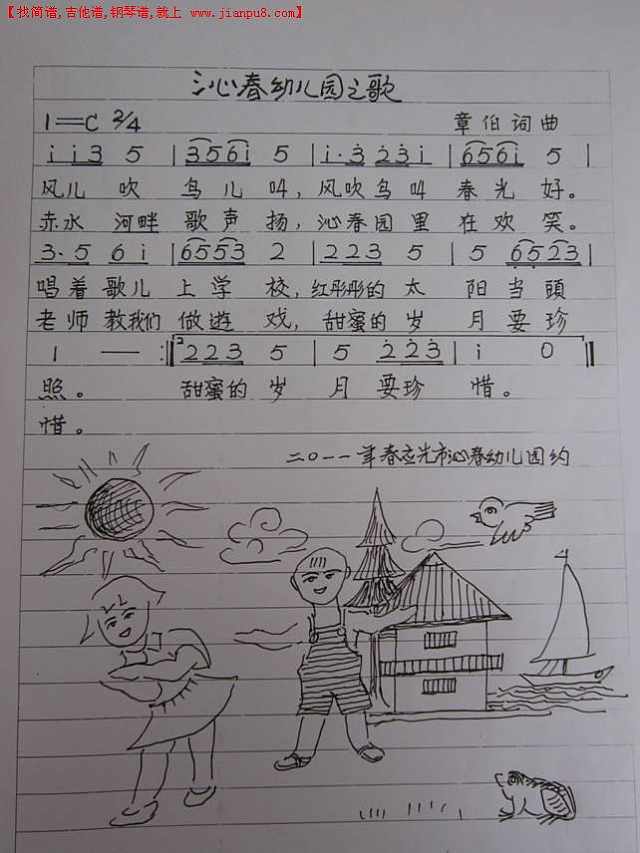 【找简谱,吉他谱,钢琴谱,就上 www.jianpu8.com】
沁春幼儿园之歌
1=C 2/4 章伯词曲
i i 3 5 | 3 5 6 i 5 | i· 3 2 3 i | 6 5 6 i 5 |
风儿 吹 鸟儿叫,风吹鸟叫 春光好。
赤水 河畔 歌声扬,沁春园里 在欢笑。
3· 5 6 i | 6 5 5 3 2 | 2 2 3 5 | 5 6 5 2 3 |
唱着歌儿 上学 校,红彤彤的 太 阳当頭
老师教我们 做遊 戏,甜蜜的岁 月要珍
1 — :‖ 2 2 3 5 | 5 2 2 3 | i 0 ‖
照。 甜蜜的岁 月 要珍 惜。
惜。
二〇一一年春应光市沁春幼儿园约